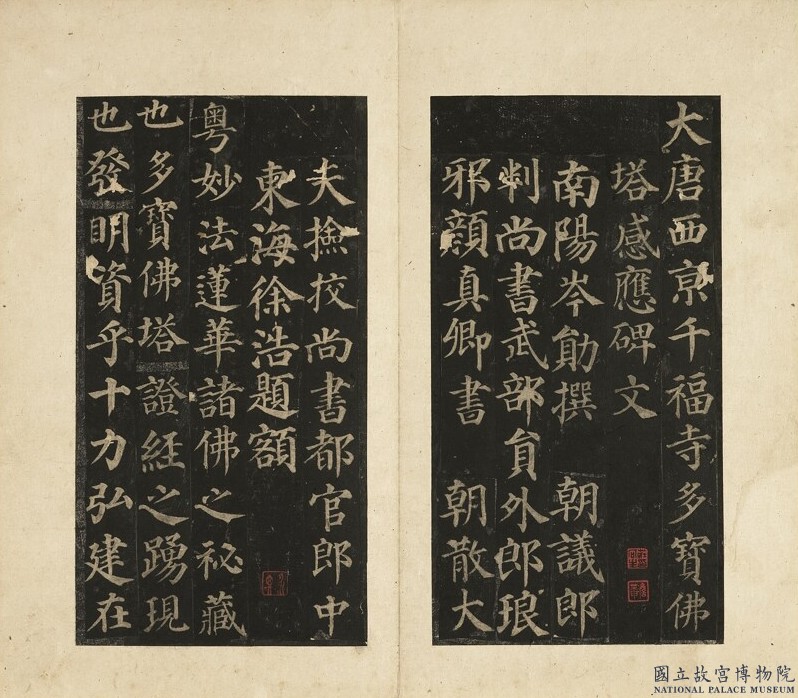 大唐西京千福寺多寶佛
塔感應碑文
南陽岑勛撰 朝議郎
判尚書武部員外郎琅
邪顏真卿書 朝散大
夫撿挍尚書都官郎中
東海徐浩題額
粵妙法蓮華諸佛之祕藏
也多寶佛塔證經之踴現
也發明資乎十力弘建在
國立故宮博物院
NATIONAL PALACE MUSEUM